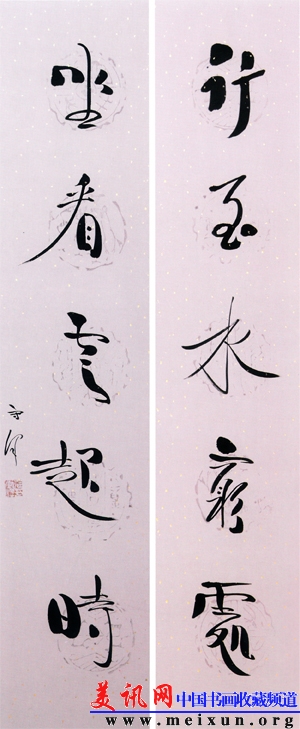 行至水窮處
坐看雲起時
美讯网 中国书画收藏频道
www.meixun.org